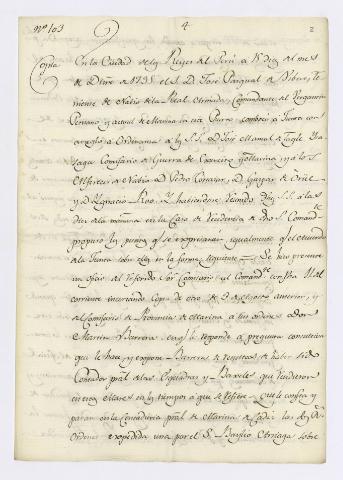 Nº 103
4
2
Copia
En la Ciudad de los Reyes del Perú a diez del mes
de Dbre de 1795 el S. D. José Pasqual de Vibero, Te
niente de Navio de la Real Armada, Comandante del Bergantin
Peruano y actual de Marina en este Puerto combocó a Junta con
arreglo a Ordenanza a los S. S. D. José Manuel de Tagle Ysa
saga Comisario de Guerra de Exercito y Marina, y a los
Alferezes de Navio D. Pedro Corazar, D. Gaspar de
y D. Ygnacio Roo. Y habiendose reunido dhos S. S. a las
diez de la mañana en la Casa de Residencia de dho S. Comandte
propuso los puntos qe se expresarán igualmente qe el acuerdo
de la Junta sobre ellos en la forma siguiente Se hizo presente
un oficio del referido Sor Comisario al Comandte con fha 11 del
corriente insertando copia de otro de 9 de anterior, y
al Comisario de Provincia de Marina a sus ordenes Dor
Martin Barrera en qe le responde a pregunta consecutiva
que le hace, y expone Barrera de resultas de haber sido
Contador pral de las Esquadras y Baxeles que vinieron
en estos Mares en los tiempos a que se refiere que le consta y
paran en la Contaduria pral de Marina de Cadiz las Rs
Ordenes expedida una por el S. Baylio Arriaga sobre